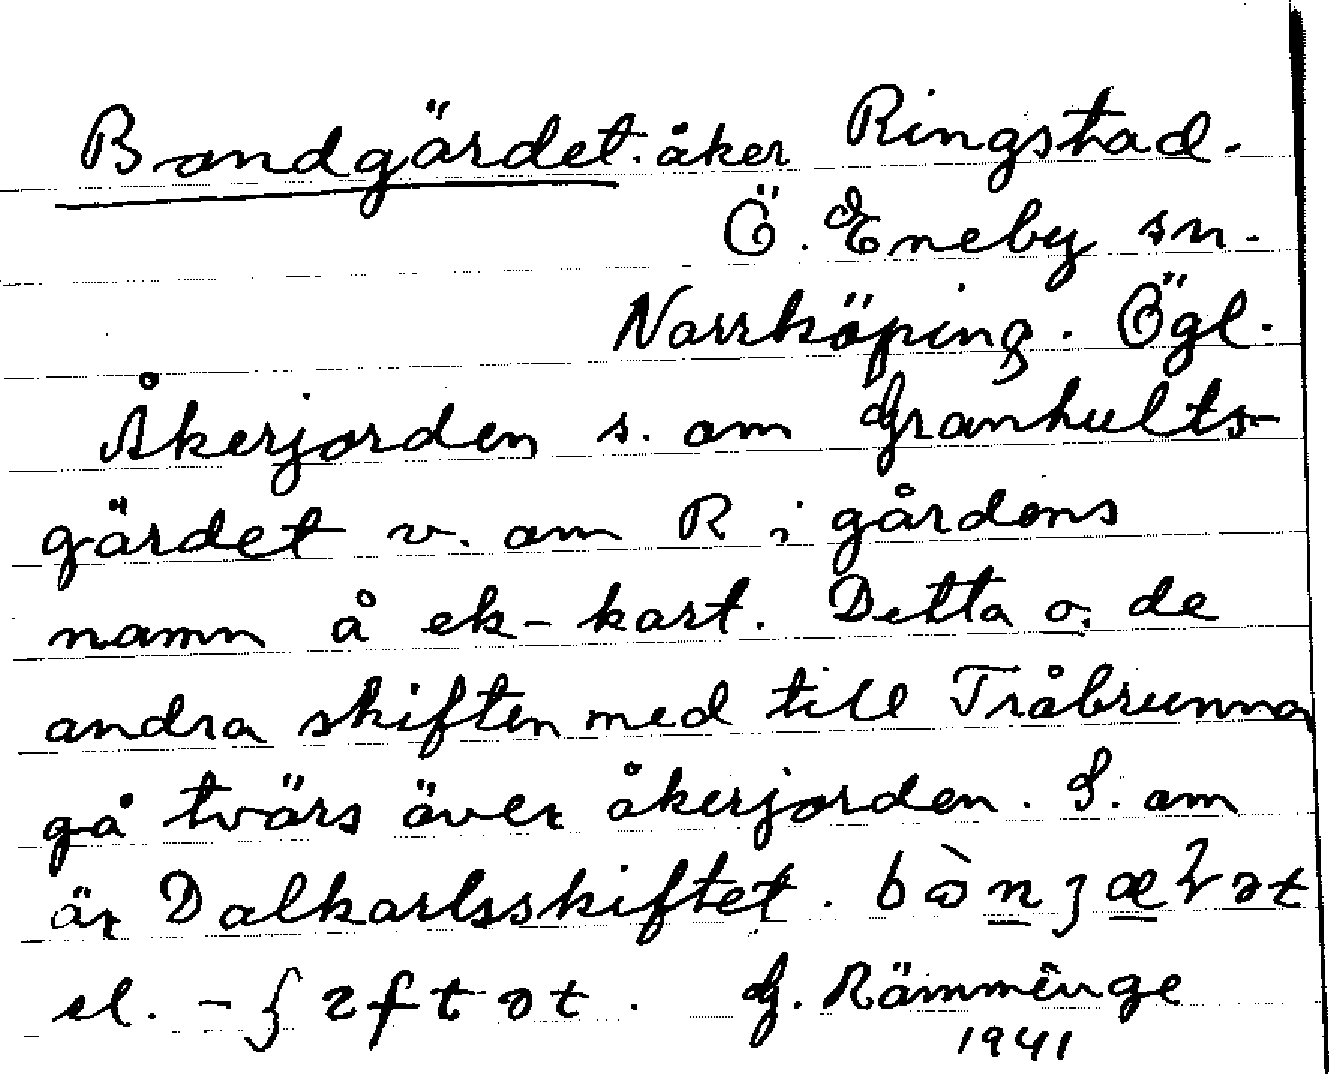 Bondgärdet. åker Ringstad.
Ö. Eneby sn.
Norrköping. Ögl.
Åkerjorden s. om Granhults-
gärdet v. om R i gårdens
namn å ek-kart. Detta o. de
andra skiften med till Tråbrunna
gå tvärs över åkerjorden. S. om
är Dalkarlsskiftet.
el.
G. Rämminge
1941